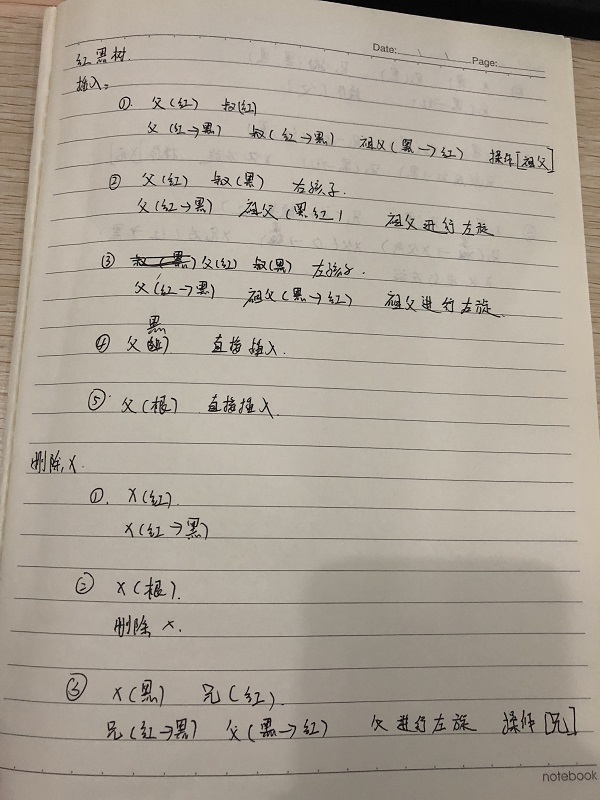 Date: / / Page:
红黑树.
插入:
① 父(红) 叔(红)
父(红→黑) 叔(红→黑) 祖父(黑→红) 操作[祖父]
② 父(红) 叔(黑) 右孩子.
父(红→黑) 祖父(黑红) 祖父进行左旋
③ 父(红) 叔(黑) 左孩子.
父(红→黑) 祖父(黑→红) 祖父进行左旋
④ 父(黑) 直接插入.
⑤ 父(根) 直接插入.
删除X.
①. X(红).
X(红→黑)
② X(根).
删除 X.
③ X(黑) 兄(红).
兄(红→黑) 父(黑→红) 父进行左旋 操作[兄]
notebook